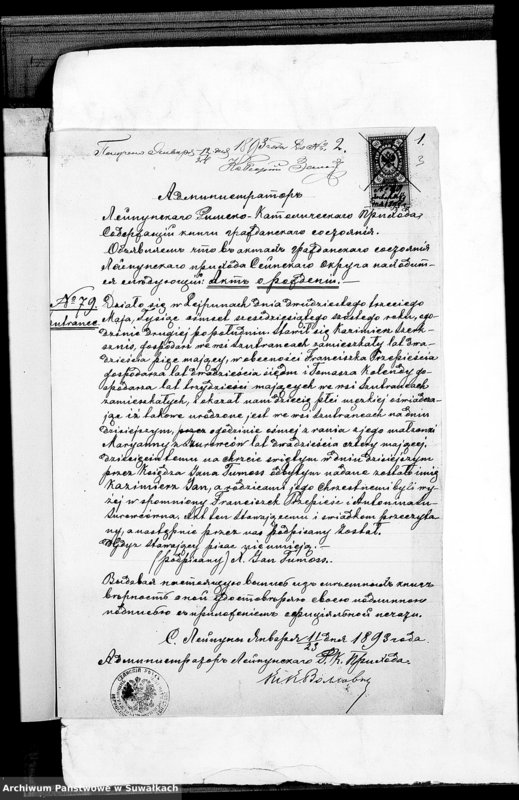 Получена Января 1893 года За № 2.
1.
3
Администраторъ
Лейпунскаго Римско-Католическаго Прихода
Содержащій книги гражданскаго состоянія.
Объявляетъ что въ актахъ гражданскаго состоянія
Лейпунскаго прихода Сейнскаго округа находит-
ся слѣдующій: Актъ о рожденіи.—
№ 79
Działo się w Lejpunach dnia dwudziestego trzeciego
Maja, Tysiąc ośmset sześćdziesiątego szóstego roku, o go-
dzinie drugiej po południu. Stawił się Kazimierz
gospodarz we wsi Szubrancach zamieszkały lat dwa-
dzieścia pięć mający, w obecności Franciszka Przepieścia
gospodarza lat dwadzieścia siedm i Tomasza Kalendy go-
spodarza lat trzydzieści mających we wsi Szubrancach
zamieszkałych, i okazał nam dziecię płci męzkiej oświadcza-
jąc iż takowe urodzone jest we wsi Szubrancach na dniu
dzisiejszym, o godzinie ósmej z rana z jego małżonki
Maryanny z lat dwadzieścia cztery mającej.
Dziecięciu temu na chrzcie świętym w dniu dzisiejszym
przez Księdza Jana Tumoss odbytym nadane zostało imię
Kazimierz Jan, a rodzicami jego chrzestnemi byli wy-
żej wspomniony Franciszek Przepieść i Antonina
Akt ten stawającemu i świadkom przeczyta-
ny, a następnie przez nas podpisany został.
Gdyż stawający pisać nie umieją.—
(podpisany) X. Jan Tumoss.
Выдавая настоящую выпись изъ метричныхъ книгъ
вѣрность оной удостовѣряю своею подлинною
подписью съ приложеніемъ офиціальной печати.
С. Лейпуны Января 11/23 дня 1893 года.
Администраторъ Лейпунскаго Р. К. Прихода
Archiwum Państwowe w Suwałkach